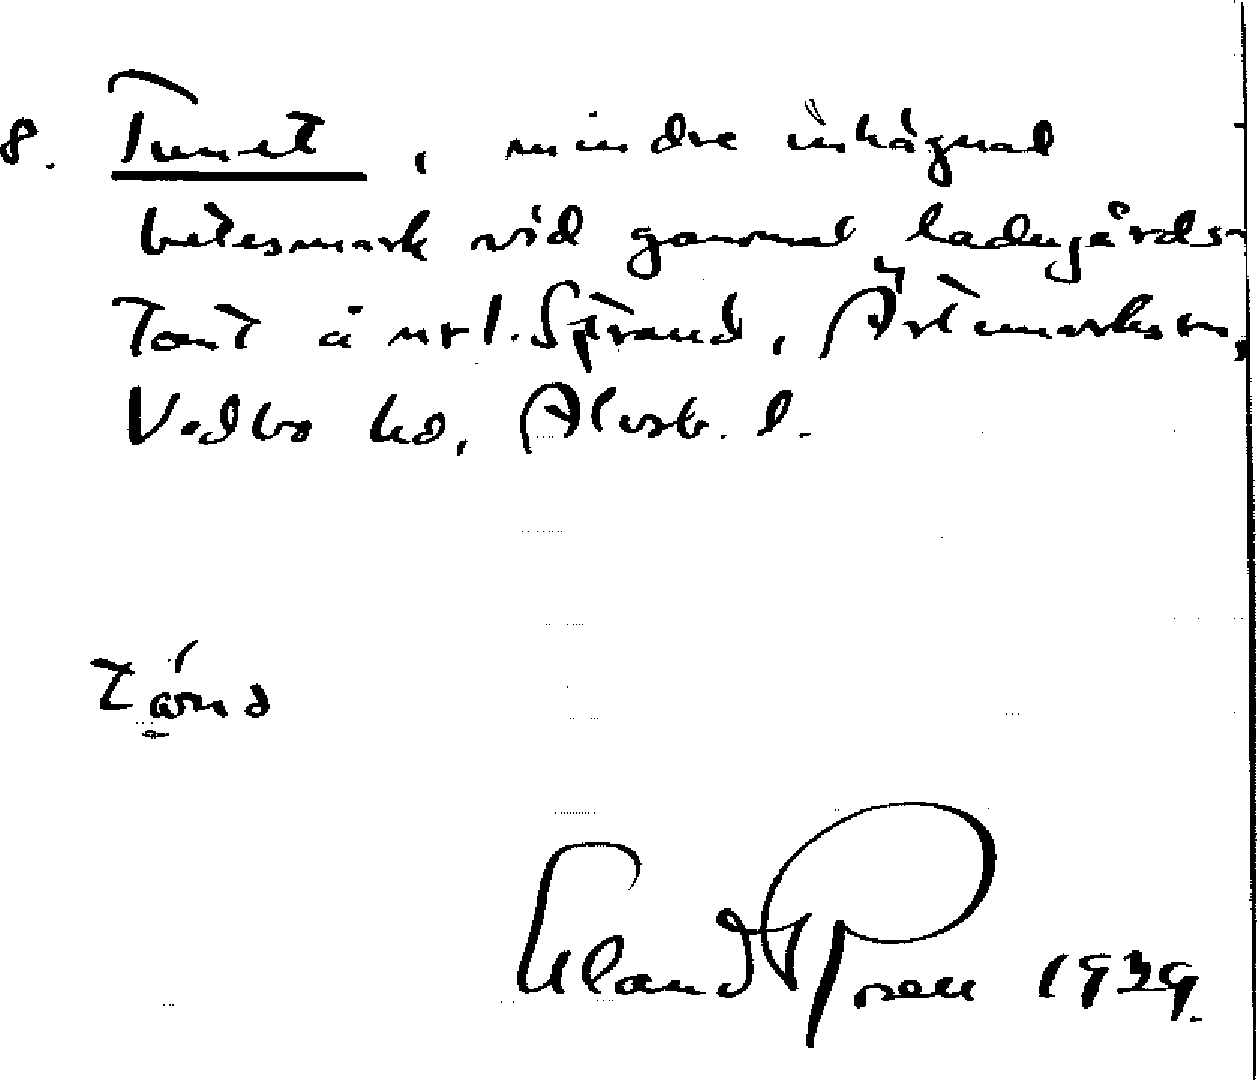 8. Tunet, mindre inhägnad
betesmark vid gammal ladugårds-
tomt å nrl. Strand, Ärtemarks sn,
Vedbo hd, Älvsb. l.
Erland Rosell 1939.